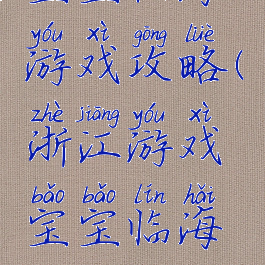 yóu xì gōng lüè
游戏攻略(
zhè jiāng yóu xì
浙江游戏
bǎo bǎo lín hǎi
宝宝临海